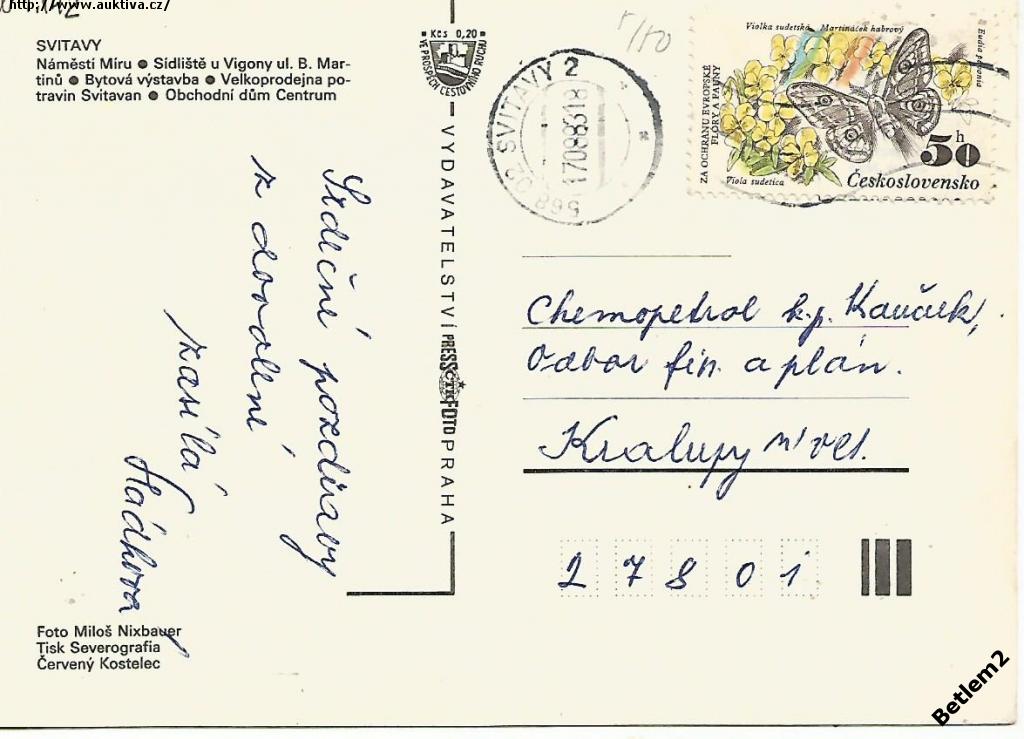 http://www.auktiva.cz/
SVITAVY
Náměstí Míru ● Sídliště u Vigony ul. B. Mar-
tinů ● Bytová výstavba ● Velkoprodejna po-
travin Svitavan ● Obchodní dům Centrum
Kčs 0,20
VE PROSPĚCH CESTOVNÍHO RUCHU
568 02 SVITAVY 2
170886 18
Violka sudetská Martináček habrový
Eudia pavonia
ZA OCHRANU EVROPSKÉ
FLÓRY A FAUNY
Viola sudetica
50 h
Československo
Srdečné pozdravy
z dovolené
zasílá
Hádkova
VYDAVATELSTVÍ PRESSFOTO PRAHA
ČTK
Chemopetrol k.p. Kaučuk,
Odbor fin. a plán.
Kralupy n/Vlt.
27801
Foto Miloš Nixbauer
Tisk Severografia
Červený Kostelec
Betlem2